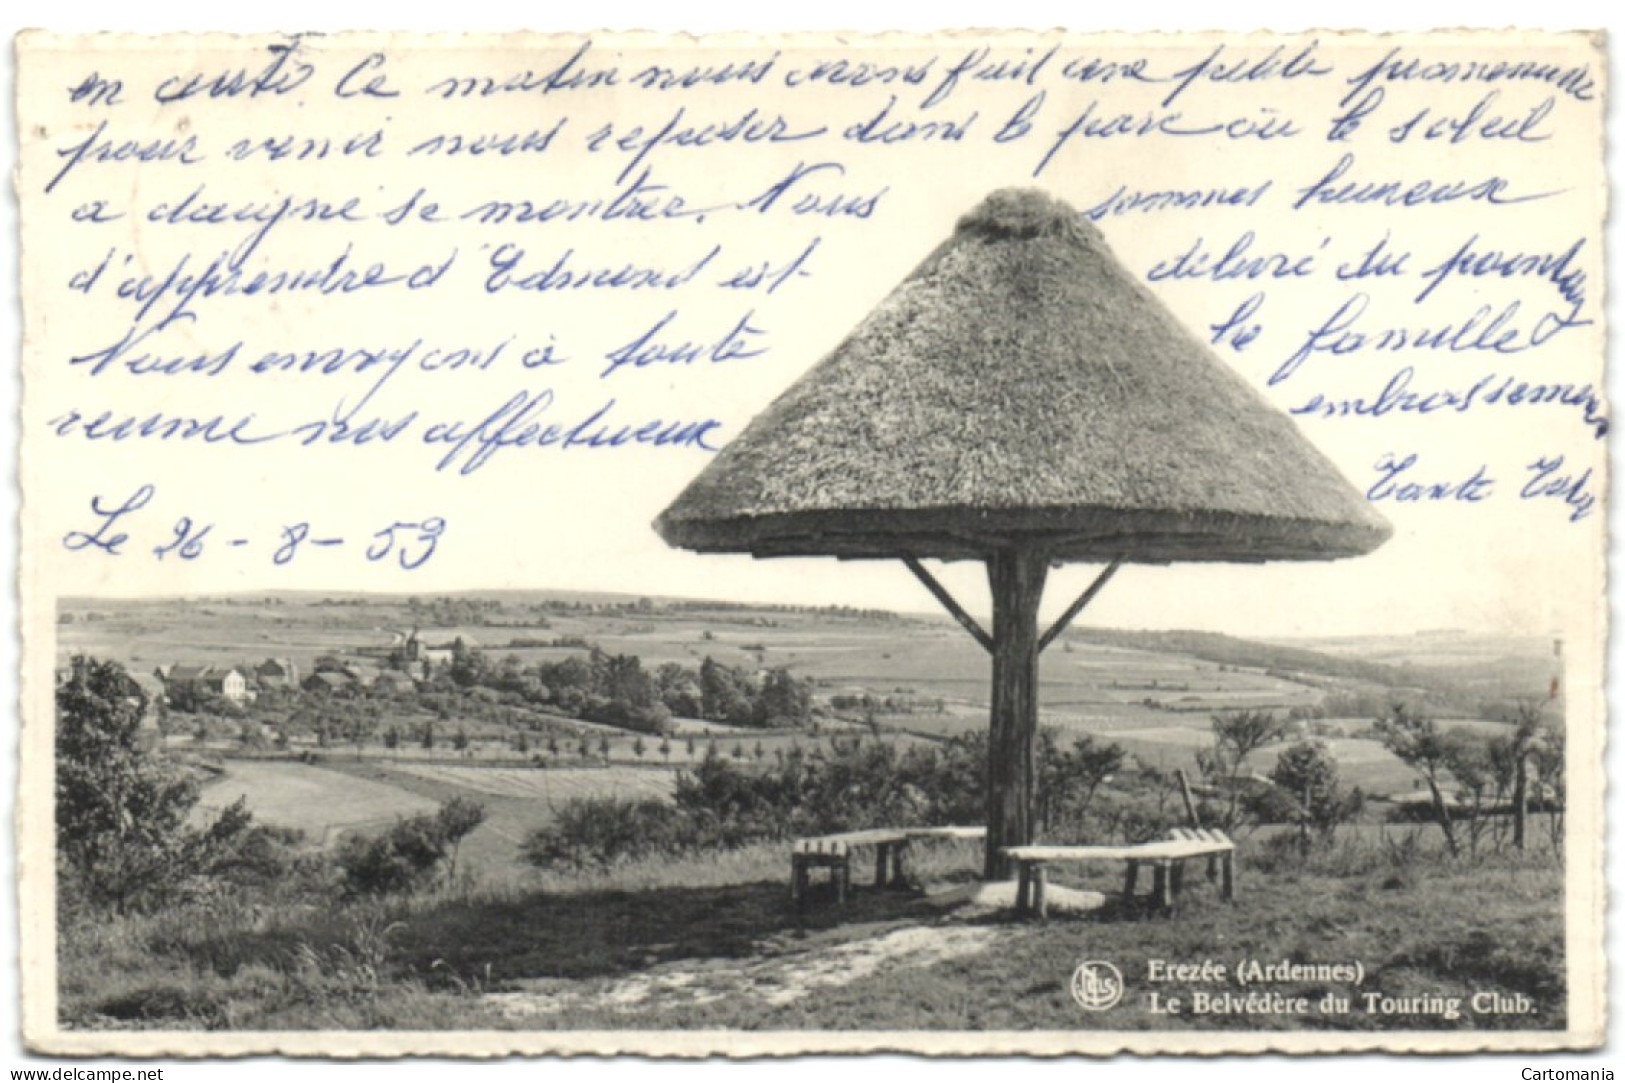 en auto. Ce matin nous avons fait une petite promenade
pour venir nous reposer dans le parc où le soleil
a daigné se montrer. Nous sommes heureux
d'apprendre d' Edmond est délivré du
Nous envoyons à toute la famille
reunie nos affectueux embrassements
Tante
Le 26 - 8 - 53
NELS
Erezée (Ardennes)
Le Belvédère du Touring Club.
delcampe.net
Cartomania